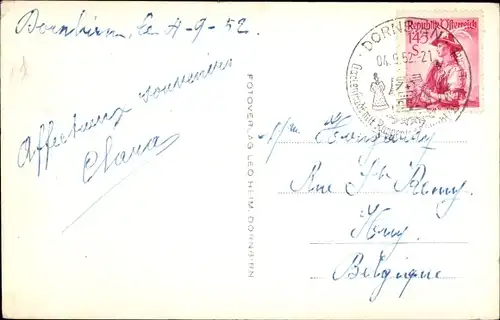 Dornbirn, le 4-9-52.
Affectueux souvenirs
Clara
FOTOVERLAG LEO HEIM, DORNBIRN
Republik Österreich
145
S
DORNBIRN
04.9.52-21
Rue St Remy,
Huy.
Belgique